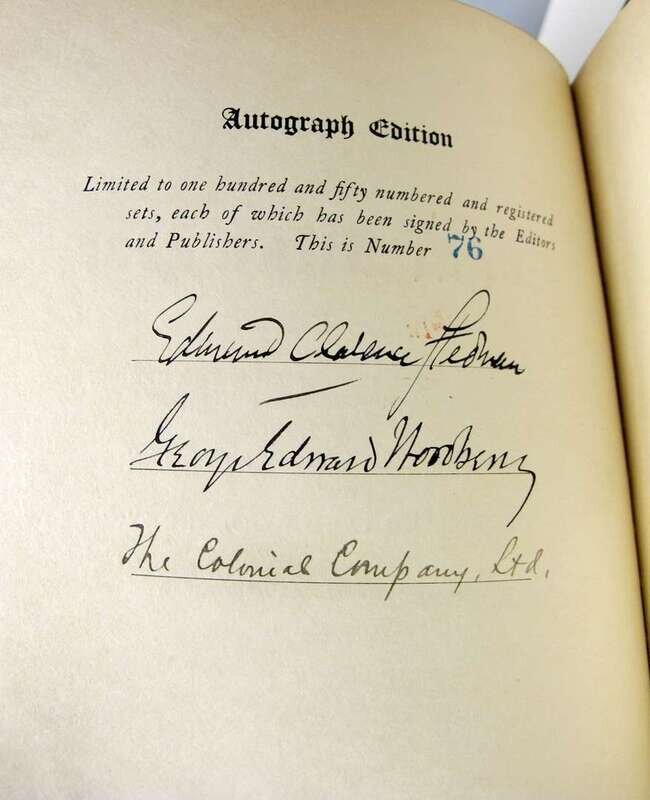 Autograph Edition
Limited to one hundred and fifty numbered and registered
sets, each of which has been signed by the Editors
and Publishers. This is Number 76
Edmund Clarence Stedman
George Edward Woodberry
The Colonial Company, Ltd.